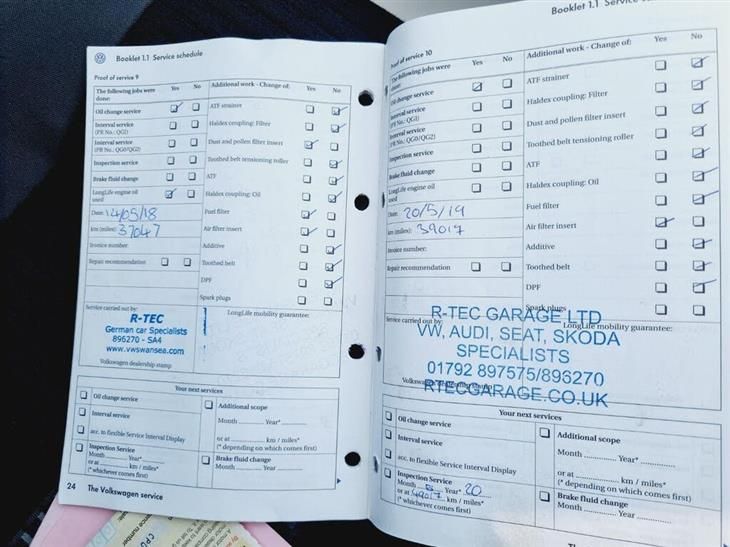 Booklet 1.1 Service schedule
Proof of service 9
The following jobs were done:
Yes No
Additional work - Change of:
Yes No
Oil change service
Interval service
(PR No.: QG1)
Interval service
(PR No.: QG0/QG2)
Inspection service
Brake fluid change
LongLife engine oil
used
Date: 14/05/18
km (miles): 37047
Invoice number:
Repair recommendation
ATF strainer
Haldex coupling: Filter
Dust and pollen filter insert
Toothed belt tensioning roller
ATF
Haldex coupling: Oil
Fuel filter
Air filter insert
Additive
Toothed belt
DPF
Spark plugs
Service carried out by:
LongLife mobility guarantee:
R-TEC
German car Specialists
896270 - SA4
www.vwswansea.com
Volkswagen dealership stamp
Your next services
Oil change service
Interval service
acc. to flexible Service Interval Display
Inspection Service
Month Year*
or at km / miles*
(* whichever comes first)
Additional scope
Month Year*
or at km / miles*
(* depending on which comes first)
Brake fluid change
Month Year
24 The Volkswagen service
Booklet 1.1 Service
Proof of service 10
The following jobs were
done:
Yes No
Additional work - Change of:
Yes No
Oil change service
Interval service
(PR No.: QG1)
Interval service
(PR No.: QG0/QG2)
Inspection service
Brake fluid change
LongLife engine oil
used
Date: 20/5/19
km (miles): 39017
Invoice number:
Repair recommendation
ATF strainer
Haldex coupling: Filter
Dust and pollen filter insert
Toothed belt tensioning roller
ATF
Haldex coupling: Oil
Fuel filter
Air filter insert
Additive
Toothed belt
DPF
Spark plugs
Service carried out by:
LongLife mobility guarantee:
R-TEC GARAGE LTD
VW, AUDI, SEAT, SKODA
SPECIALISTS
01792 897575/896270
RTECGARAGE.CO.UK
Your next services
Oil change service
Interval service
acc. to flexible Service Interval Display
Inspection Service
Month Year* 20
or at 49017 km / miles*
(* whichever comes first)
Additional scope
Month Year*
or at km / miles*
(* depending on which comes first)
Brake fluid change
Month Year